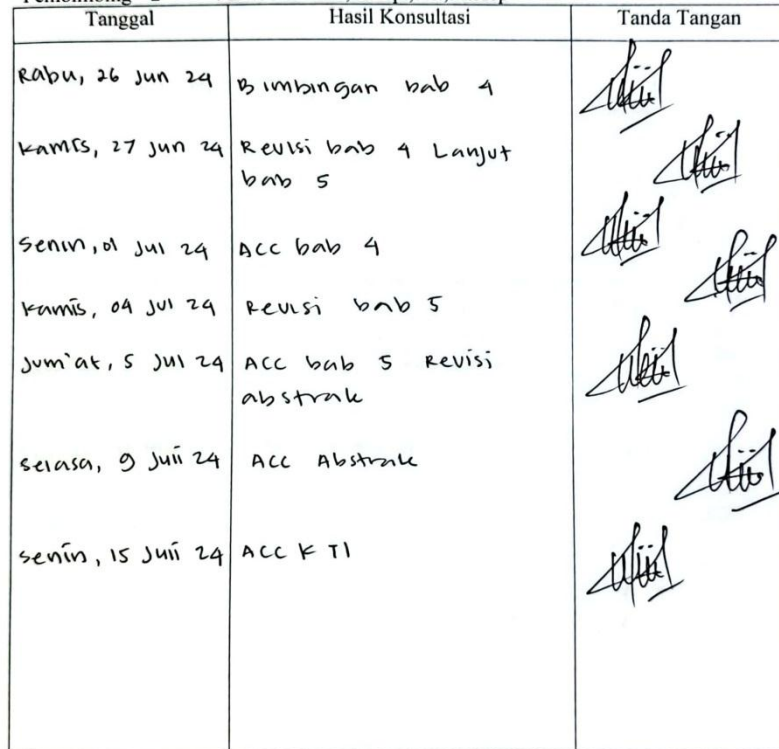 Tanggal Hasil Konsultasi Tanda Tangan
Rabu, 26 Jun 24 Bimbingan bab 4
Kamis, 27 Jun 24 Revisi bab 4 Lanjut
bab 5
Senin, 01 Jul 24 ACC bab 4
Kamis, 04 Jul 24 Revisi bab 5
Jum'at, 5 Jul 24 ACC bab 5 Revisi
abstrak
Selasa, 9 Juli 24 ACC Abstrak
Senin, 15 Juli 24 ACC KTI